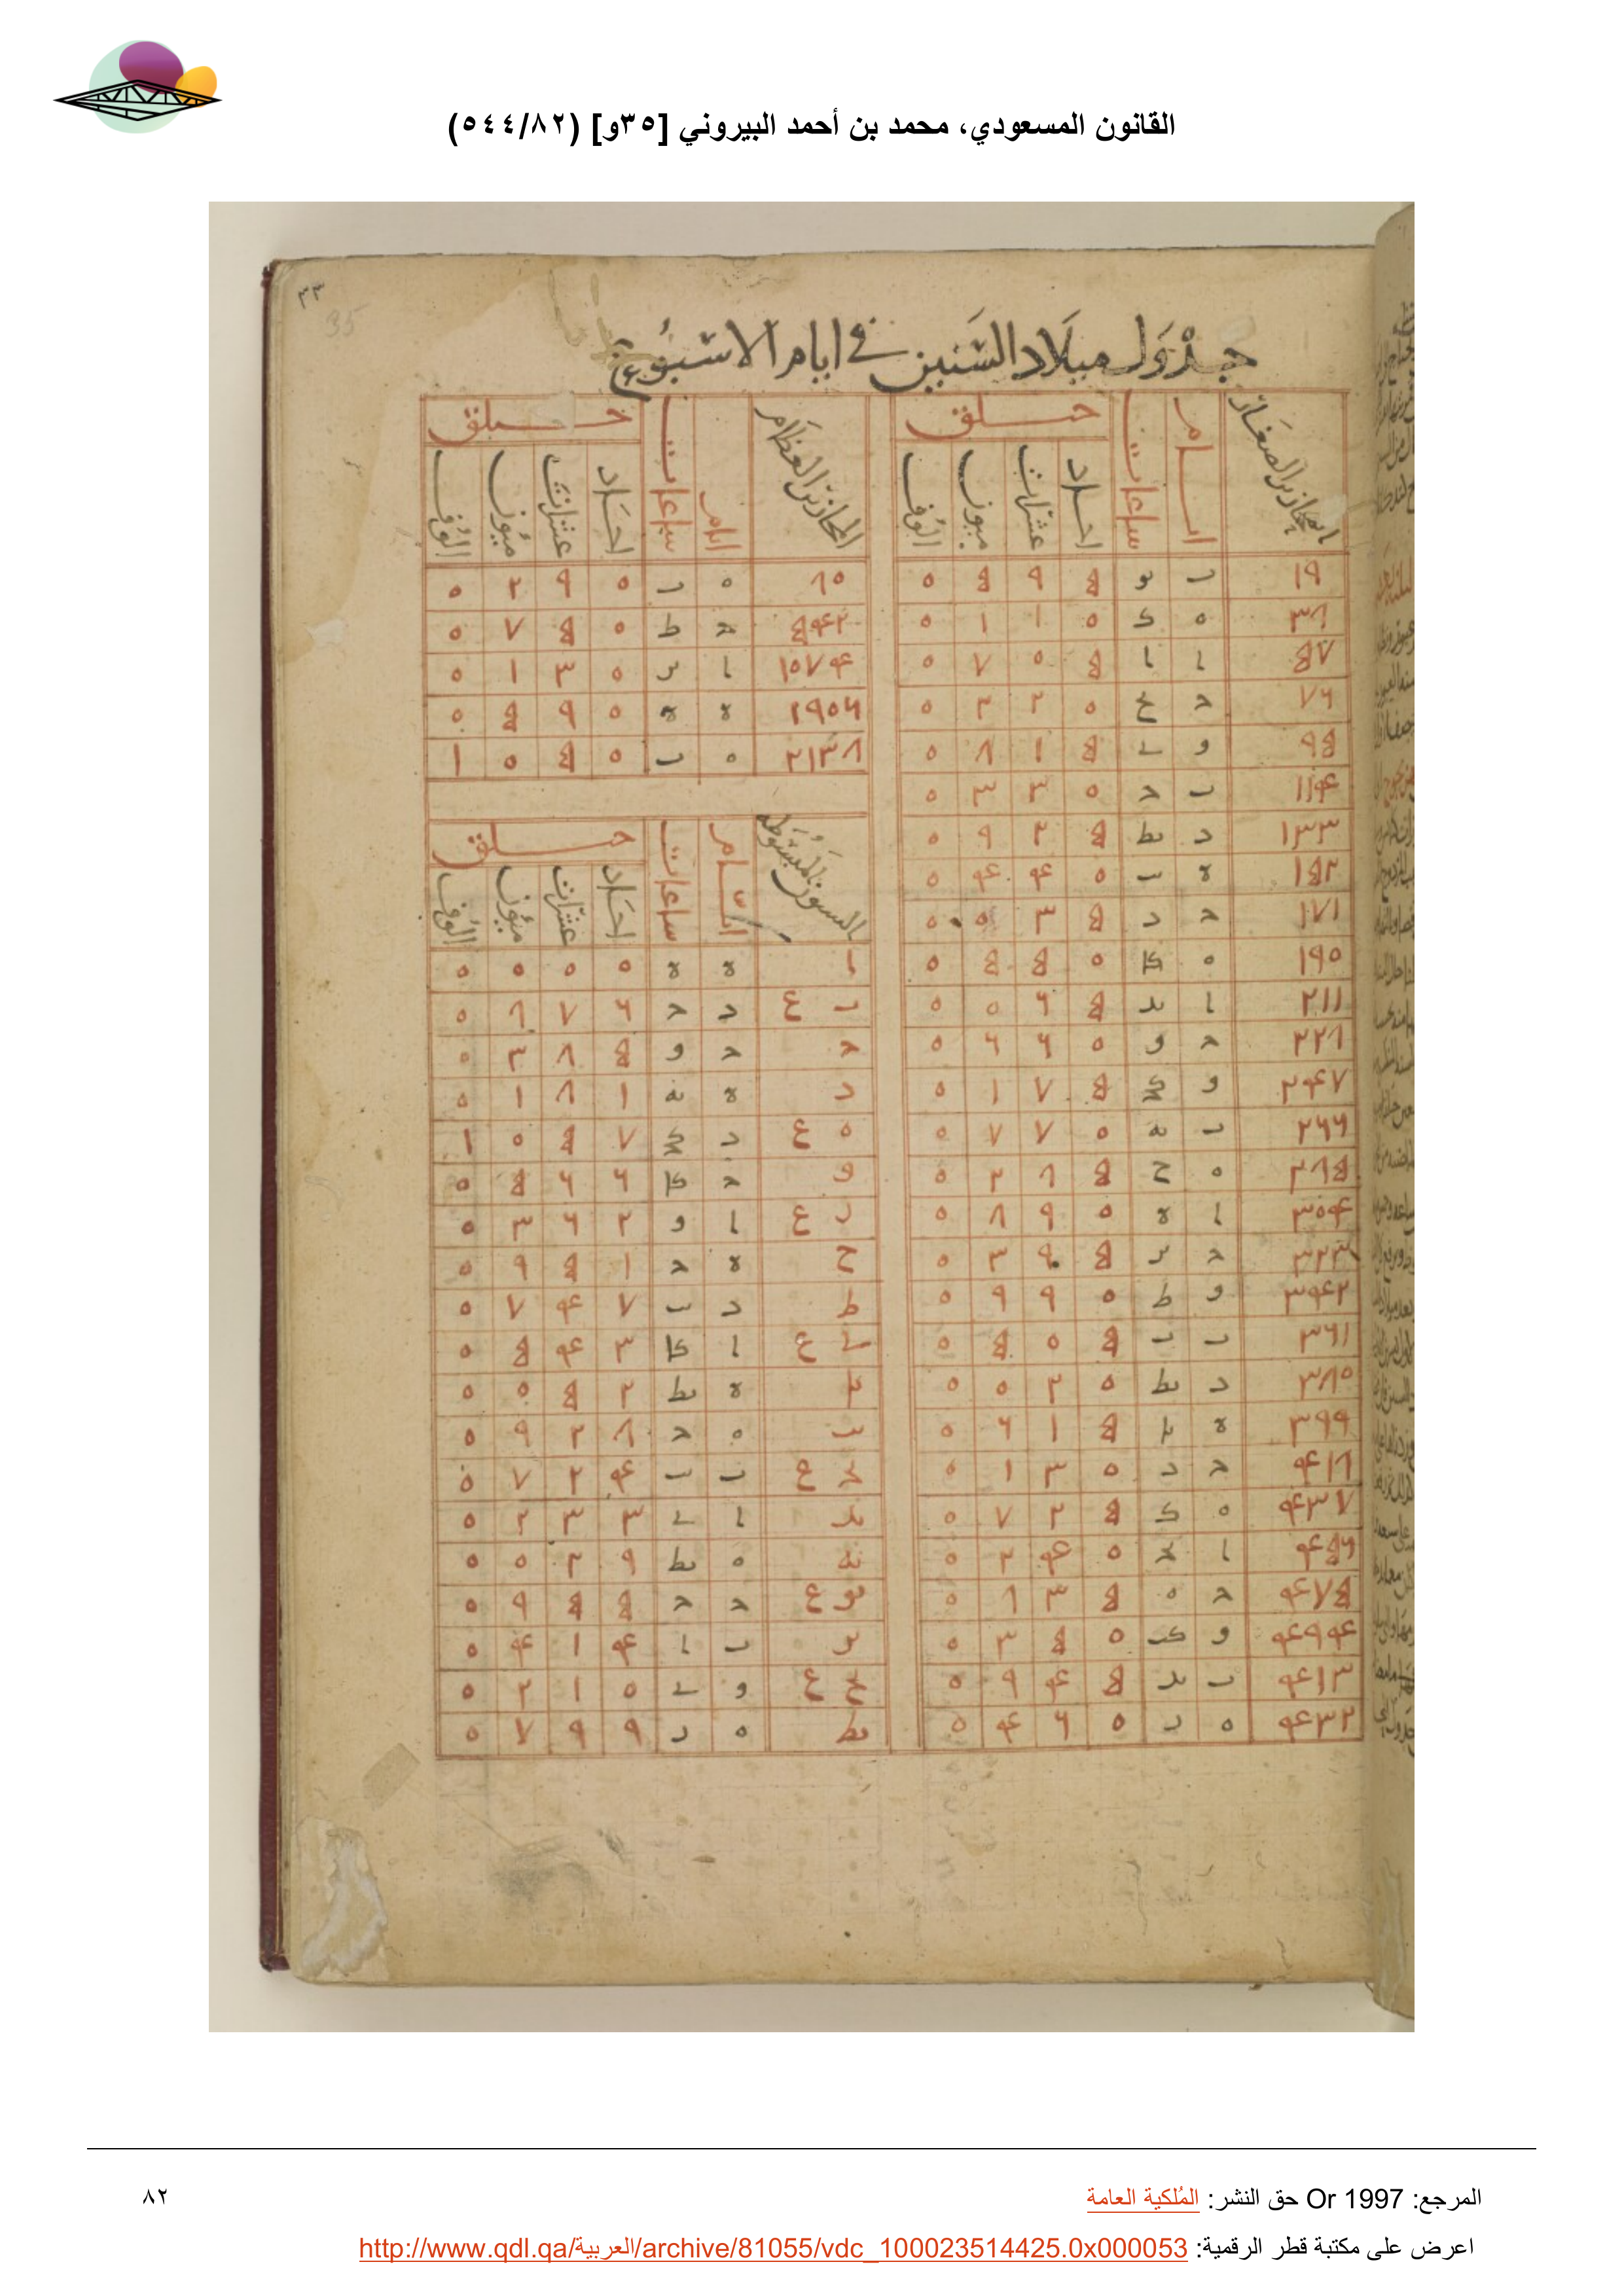 القانون المسعودي، محمد بن أحمد البيروني [٣٥و] (٥٤٤/٨٢)
٣٣
35
جدول ميلاد السنين في ايام الاسبوع
المحازير الصغار ايام ساعات حلق
احاد عشرات ميون الوف
١٩ ب يو ٥ ٩ ٥ ٠
٣٨ ه ط ٠ ١ ١ ٠
٥٧ ا ا ٥ ٠ ٧ ٠
٧٦ ج يح ٠ ٢ ٢ ٠
٩٥ و ي ٥ ١ ٨ ٠
١١٤ ب ج ٠ ٣ ٣ ٠
١٣٣ د يط ٥ ٢ ٩ ٠
١٥٢ ٠ يب ٠ ٤ ٤ ٠
١٧١ ج د ٥ ٣ ٠ ٠
١٩٠ ه كا ٠ ٥ ٥ ٠
٢١١ ا يد ٥ ٦ ٠ ٠
٢٢٨ ج و ٠ ٦ ٦ ٠
٢٤٧ و كج ٥ ٧ ١ ٠
٢٦٦ ب يه ٠ ٧ ٧ ٠
٢٨٥ ه ح ٥ ٨ ٢ ٠
٣٠٤ ا ٠ ٠ ٩ ٨ ٠
٣٢٣ ج يز ٥ ٩ ٣ ٠
٣٤٢ و ط ٠ ٩ ٩ ٠
٣٦١ ب ب ٥ ٠ ٥ ٠
٣٨٠ د يط ٠ ٢ ٠ ٠
٣٩٩ ٠ يا ٥ ١ ٦ ٠
٤١٨ ج د ٠ ٣ ١ ٠
٤٣٧ ه ك ٥ ٢ ٧ ٠
٤٥٦ ا يج ٠ ٤ ٢ ٠
٤٧٥ ج ه ٥ ٣ ٨ ٠
٤٩٤ و كب ٠ ٥ ٣ ٠
٤١٣ ب يد ٥ ٤ ٩ ٠
٤٣٢ ه ز ٠ ٦ ٤ ٠
المحازير العظام ايام ساعات حلق
احاد عشرات ميون الوف
٨٠ ه ب ٠ ٩ ٢ ٠
٥٤٢ ج ط ٠ ٥ ٧ ٠
١٠٧٤ ا يز ٠ ٣ ١ ٠
١٩٠٦ ٠ ٠ ٠ ٩ ٥ ٠
٢١٣٨ ه ب ٠ ٥ ٠ ١
السنون المبسوطة ايام ساعات حلق
احاد عشرات ميون الوف
ا ٠ ٠ ٠ ٠ ٠ ٠
ب ع د ح ٦ ٧ ٨ ٠
ج ج و ٥ ٨ ٣ ٠
د ٠ يه ١ ٨ ١ ٠
ه ع د كج ٧ ٥ ٠ ١
و ج كا ٦ ٦ ٥ ٠
ز ع ا و ٢ ٦ ٣ ٠
ح ٠ ج ١ ٥ ٩ ٠
ط د يب ٧ ٤ ٧ ٠
ي ع ا كا ٣ ٤ ٥ ٠
يا ٠ يط ٢ ٥ ٠ ٠
يب ه ج ٨ ٢ ٩ ٠
يج ع ب يب ٤ ٢ ٧ ٠
يد ا ي ٣ ٣ ٢ ٠
يه ه يط ٩ ٢ ٠ ٠
يو ع ج ج ٥ ٥ ٩ ٠
يز ب ا ٤ ١ ٤ ٠
يح ع و ي ٠ ١ ٢ ٠
يط ه ز ٩ ٩ ٧ ٠
المرجع: Or 1997 حق النشر: المُلكية العامة
٨٢
اعرض على مكتبة قطر الرقمية: http://www.qdl.qa/العربية/archive/81055/vdc_100023514425.0x000053